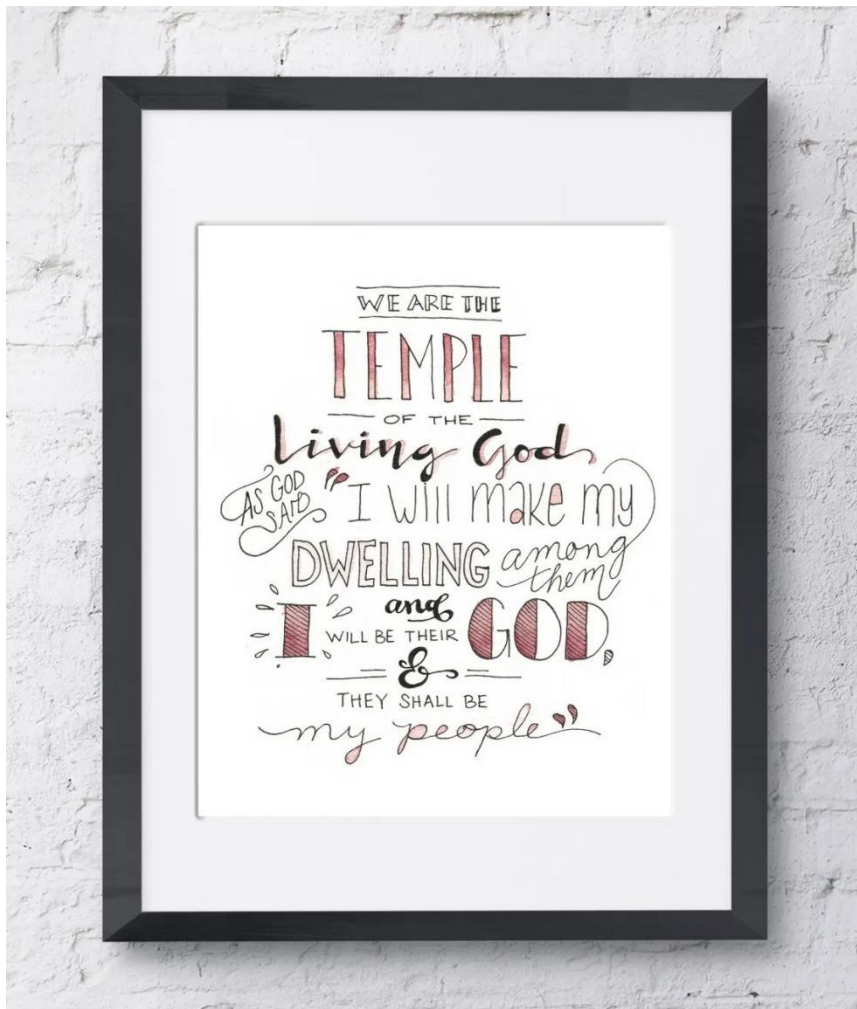 WE ARE THE
TEMPLE
OF THE
Living God,
AS GOD SAID "I will make my
DWELLING among them
and
I WILL BE THEIR GOD,
&
THEY SHALL BE
my people"